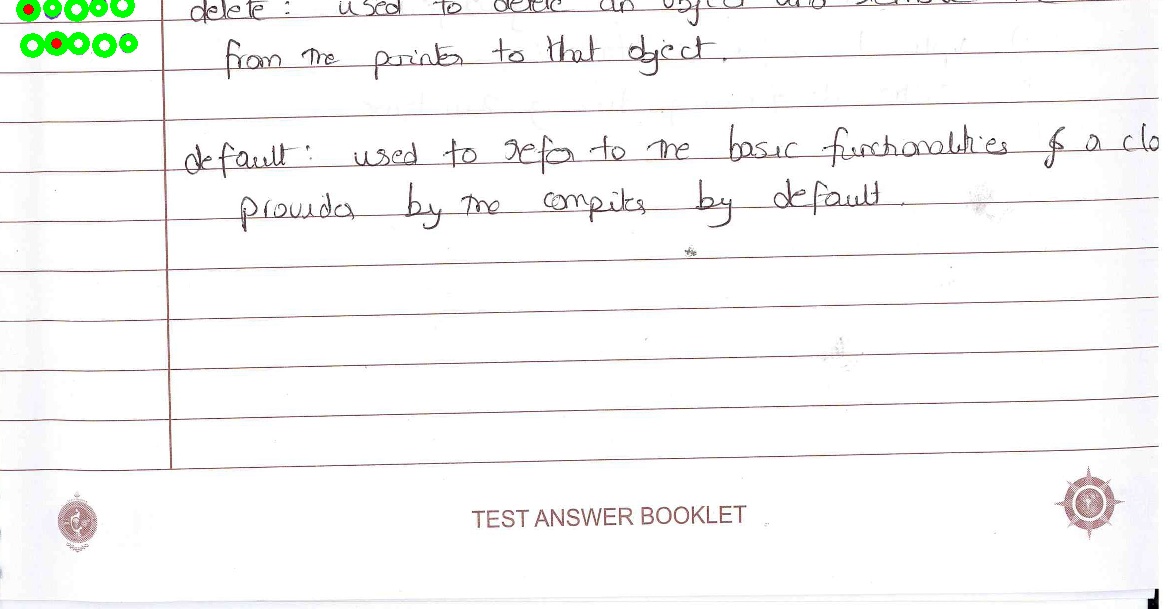 delete : used to delete an object and
from the pointer to that object.
default : used to refer to the basic functionalities of a cla
provides by the compiler by default.
TEST ANSWER BOOKLET